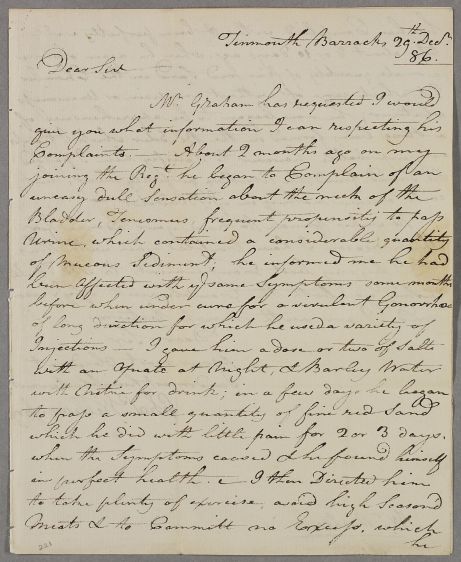 Tinmouth Barracks 29th Decr
86.
Dear Sir
Mr. Graham has requested I would
give you what information I can respecting his
Complaints. — About 2 months ago on my
joining the Regt he began to Complain of an
uneasy dull Sensation about the neck of the
Bladder, Tenesmus, frequent propensity to pass
Urine, which contained a considerable quantity
of Mucous Sediment, he informed me he had
been affected with ye same Symptoms some months
before when under cure for a virulent Gonorrhœa
of long duration for which he used a variety of
Injections — I gave him a dose or two of Salts
with an at Night, & Barley Water
with Nitre for drink; in a few days he began
to pass a small quantity of fine red Sand
which he did with little pain for 2 or 3 days.
when the Symptoms ceased & he found himself
in perfect health. — I then Directed him
to take plenty of exercise, avoid high Seasond
Meats & to Committ no Excess, which
he
221